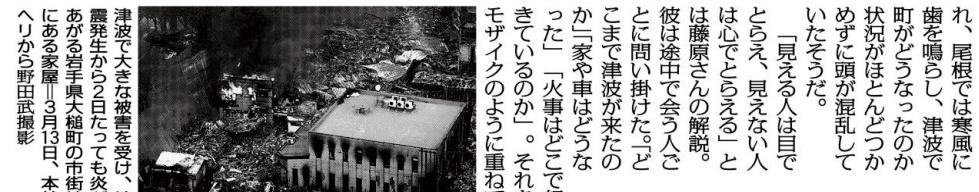 れ、尾根では寒風に
歯を鳴らし、津波で
町がどうなったのか
状況がほとんどつか
めずに頭が混乱して
いたそうだ。
「見える人は目で
とらえ、見えない人
は心でとらえる」と
は藤原さんの解説。
彼は途中で会う人ご
とに問い掛けた。「ど
こまで津波が来たの
か」「家や車はどうな
った」「火事はどこで
きているのか」。それ
モザイクのように重ね
津波で大きな被害を受け、
震発生から2日たっても炎
あがる岩手県大槌町の市街
にある家屋=3月13日、本
ヘリから野田武撮影